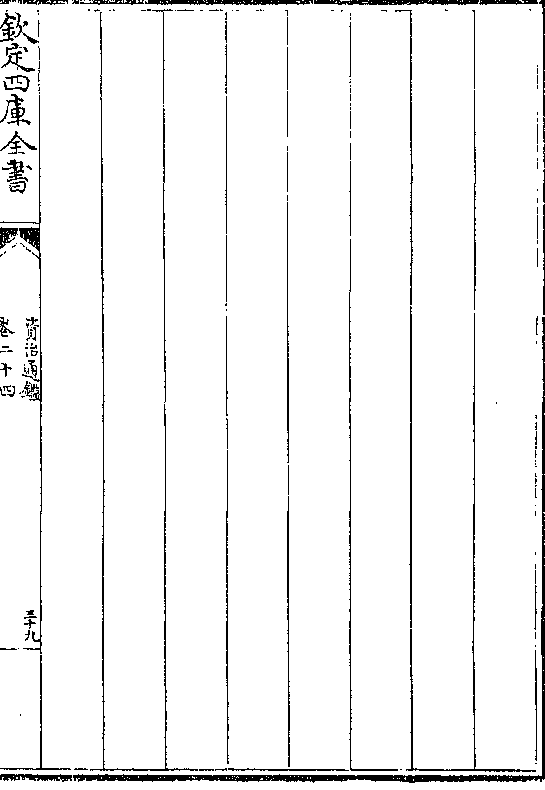 欽定四庫全書
資治通鑑
卷二十四
三十九